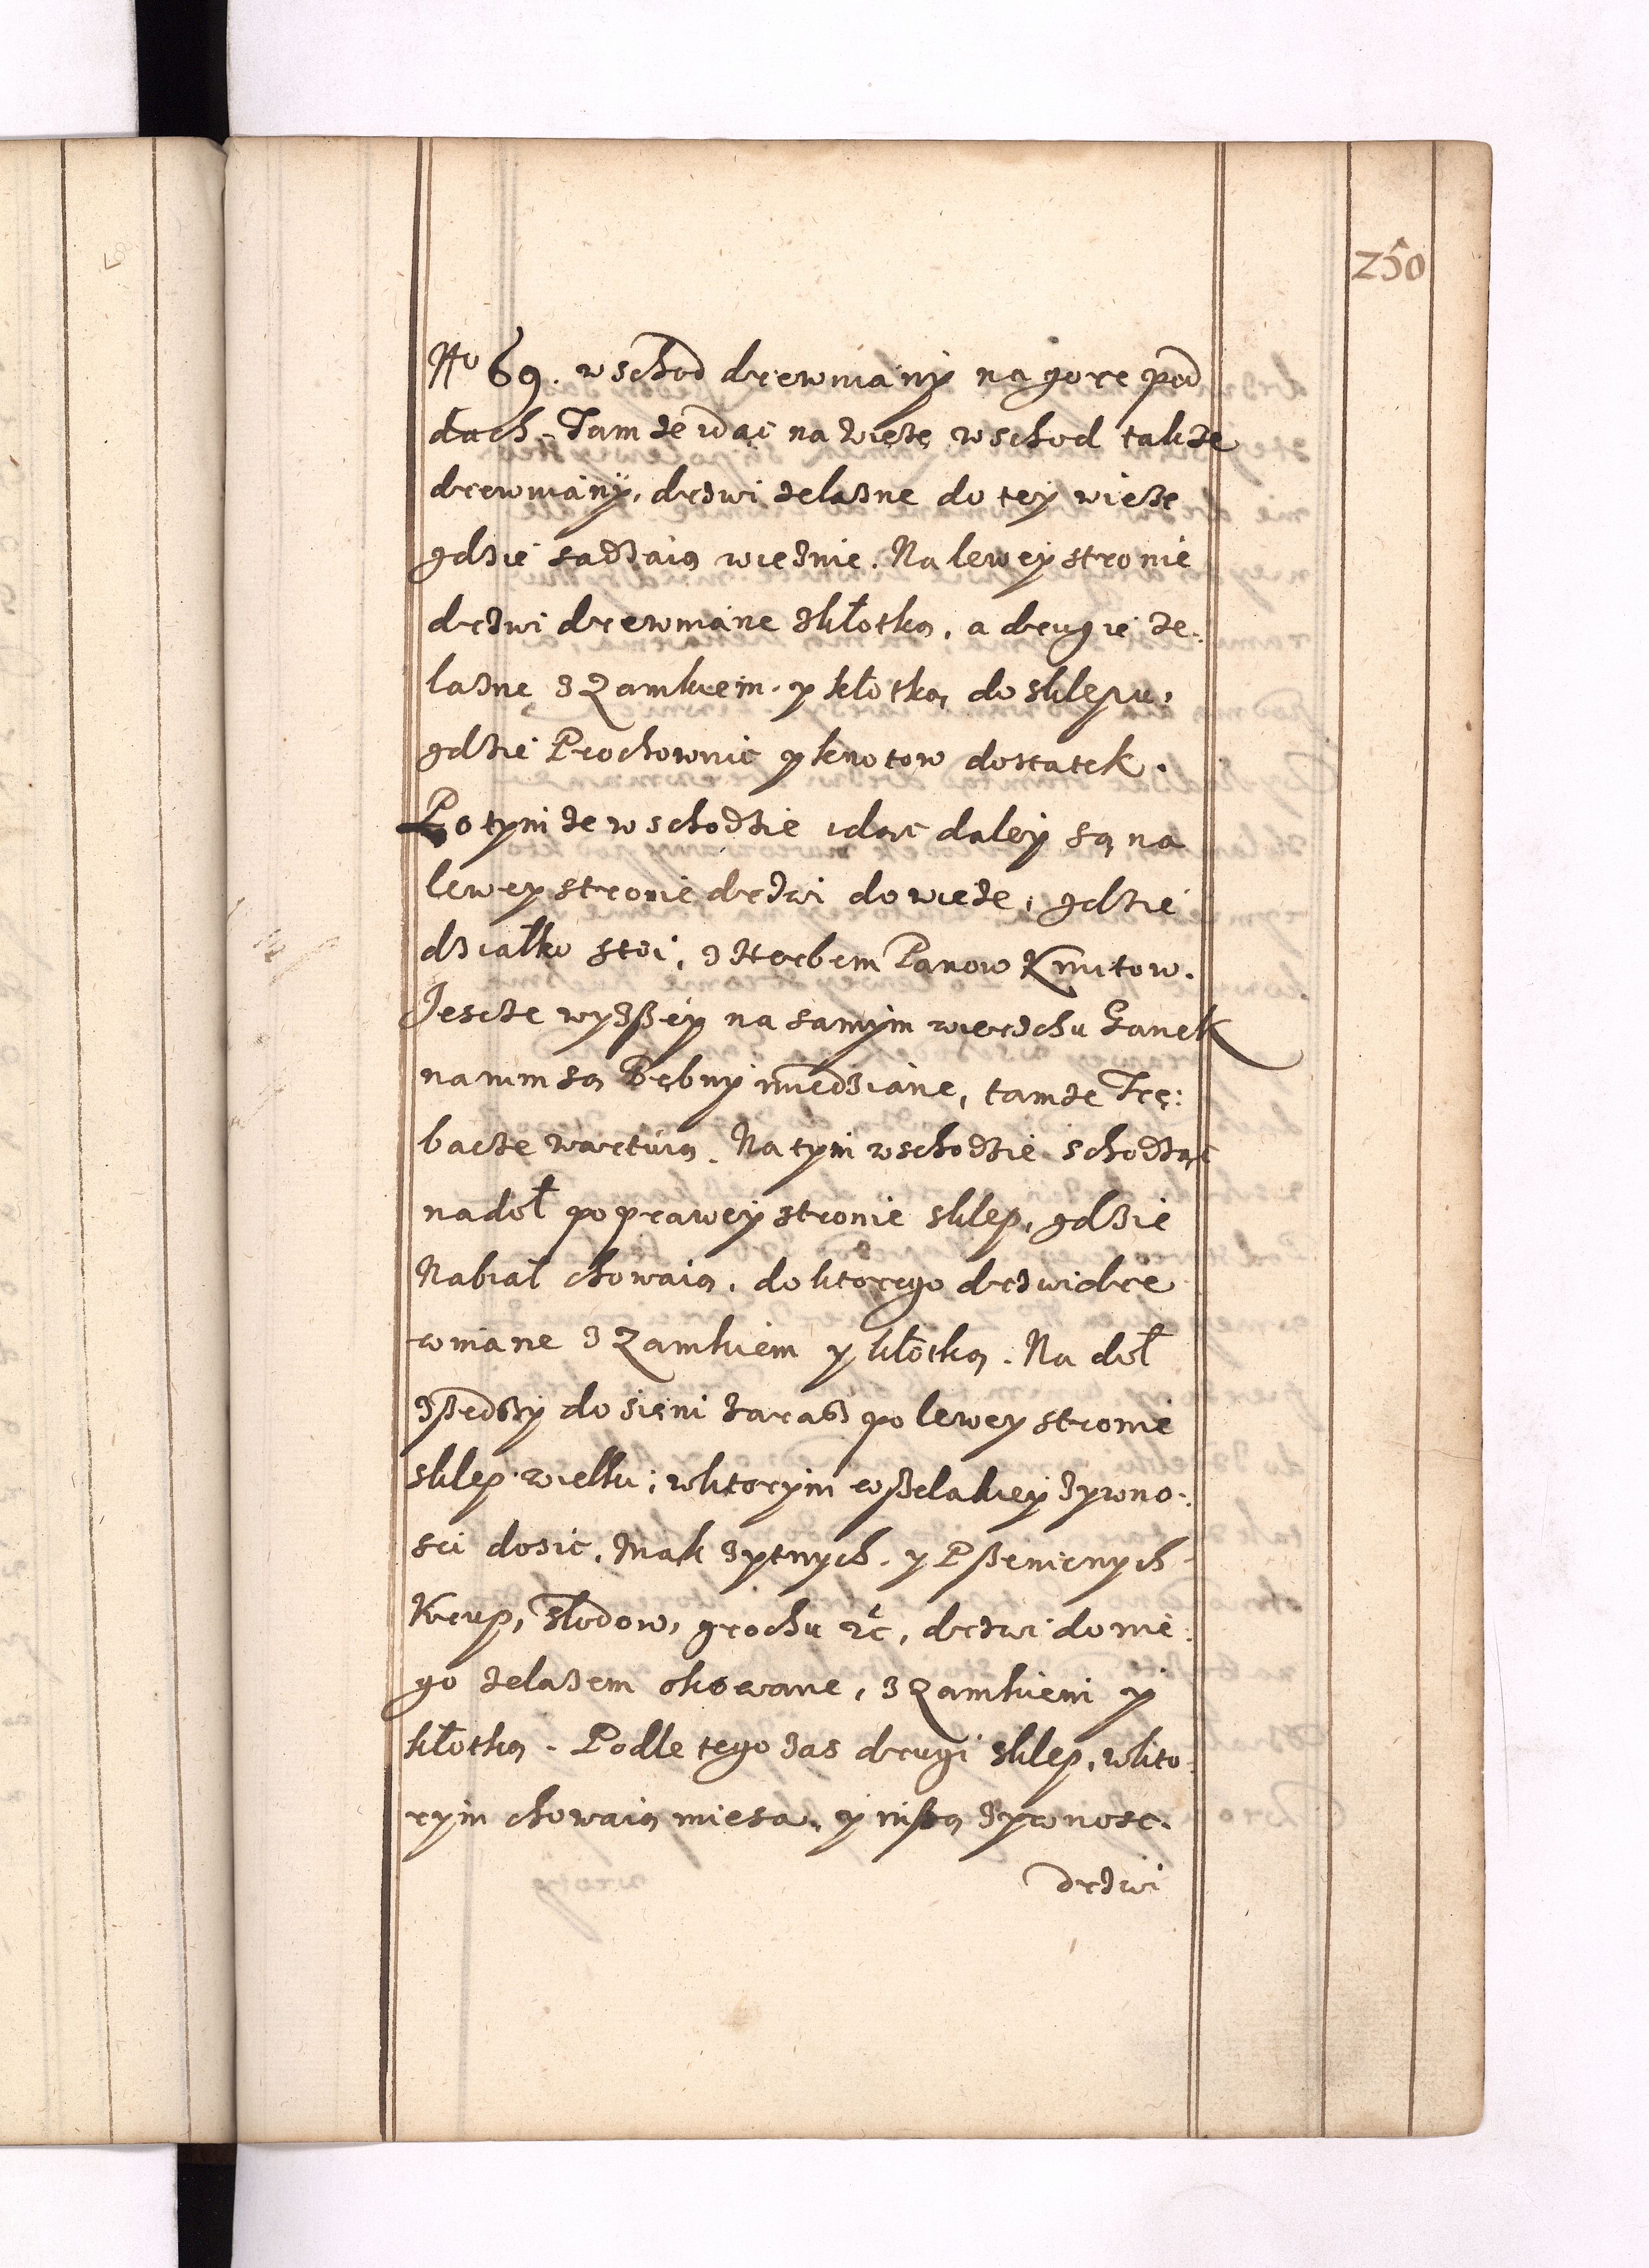 250
No 69. wschod drewniany na gore pod
dach. Tamze idąc na wieżę wschod takze
drewniany, drzwi zelazne do tey wieże
gdzie sadzaią wieznie. Na lewey stronie
drzwi drewniane z kłotką, a drugie że:
lazne z Zamkiem y kłotką do sklepu,
gdzie Prochownic y knotow dostatek.
Po tym że wschodzie idąc daley są na
lewey stronie drzwi do wieże, gdzie
działko stoi, z Herbem Panow Kmitow.
Jescze wyzszey na samym wierzchu Ganek
na nim są Bębny miedziane, tamze Trę:
bacze wartuią. Na tym wschodzie schodząc
na doł po prawey stronie sklep, gdzie
Nabiał chowaią, do ktorego drzwi dre
wniane z Zamkiem y kłotką. Na doł
zszedszy do sieni zaraz po lewey stronie
sklep wielki; w ktorym wszelakiey zywno:
sci dosic, Mąk żytnych y Pszenicnych
Krup, Słodow, grochu &c, drzwi do nie:
go zelazem okowane, z Zamkiem y
kłotką. Podle tego zas drugi sklep, w kto:
rym chowaią miesa, y inszą zywnosc.
drzwi